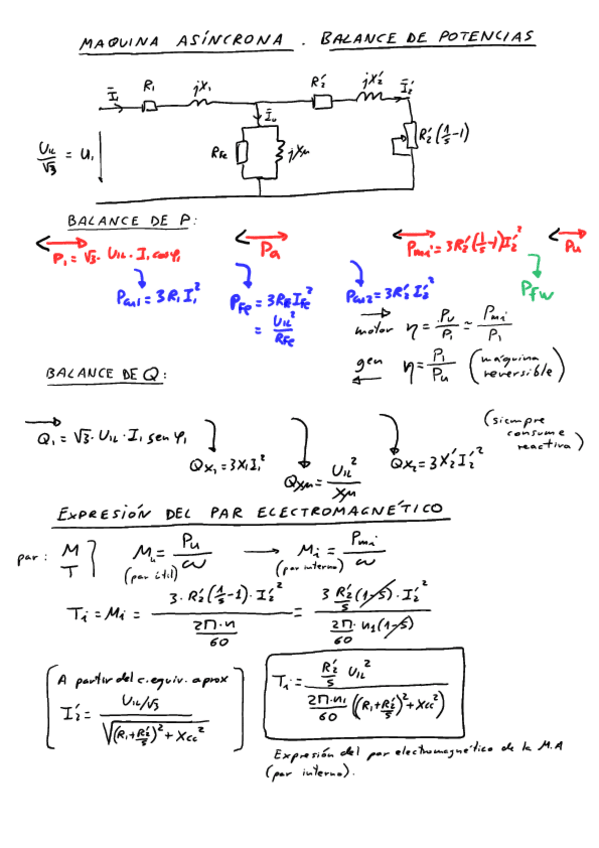 MAQUINA ASÍNCRONA . BALANCE DE POTENCIAS
Ī₁ R₁ jX₁ R₂' jX₂' Ī₂'
Ī₀
U₁L/√3 = U₁ RFe jXμ R₂'(1/s-1)
BALANCE DE P:
P₁ = √3 · U₁L · I₁ cos φ₁ Pa Pmi = 3R₂'(1/s-1)I₂'² Pu
Pcu1 = 3R₁I₁² PFe = 3RFe IFe² Pcu2 = 3R₂'I₂'² Pfw
= U₁L²/RFe
motor η = Pu/P₁ ≃ Pmi/P₁
gen η = P₁/Pu (máquina reversible)
BALANCE DE Q:
Q₁ = √3 · U₁L · I₁ sen φ₁ (siempre consume reactiva)
Qx₁ = 3X₁I₁² QXμ = U₁L²/Xμ Qx₂ = 3X₂'I₂'²
EXPRESIÓN DEL PAR ELECTROMAGNÉTICO
par: M T } Mu = Pu/ω (par útil) → Mi = Pmi/ω (par interno)
Ti = Mi = 3·R₂'(1/s-1)·I₂'² / (2π·n/60) = 3 R₂'/s (1-s)·I₂'² / (2π/60 · n₁(1-s))
A partir del c.equiv. aprox
I₂' = U₁L/√3 / √((R₁+R₂'/s)²+Xcc²)
Ti = R₂'/s U₁L² / (2π·n₁/60 ((R₁+R₂'/s)²+Xcc²))
Expresión del par electromagnético de la M.A
(par interno).